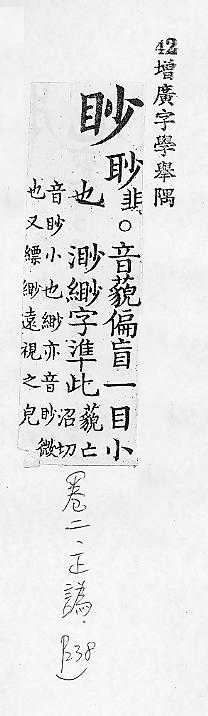 42增廣字學舉隅
眇
𦕈非。音藐偏盲一目小
也 渺緲字準此
藐亡
沼切
音眇小也緲亦音眇微
也又縹緲遠視之皃
卷二、正譌.
P238